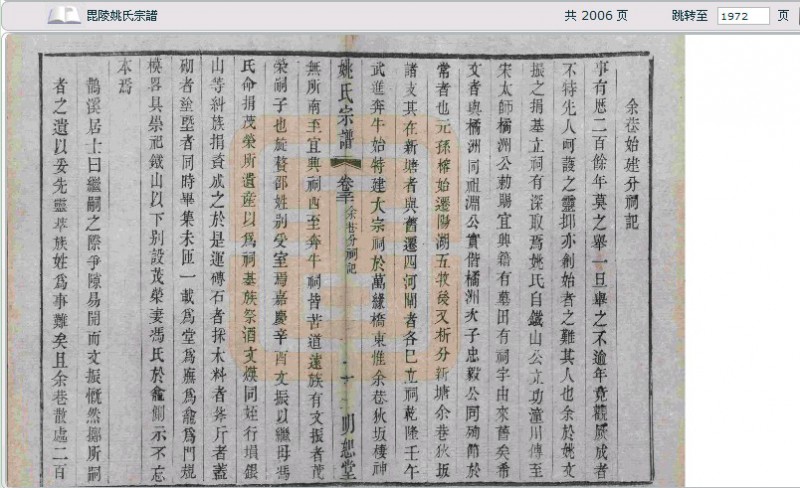 毘陵姚氏宗譜
共 2006 页
跳转至 1972 页
余巷始建分祠記
事有歷二百餘年莫之舉一旦舉之不逾年竟觀厥成者
不特先人呵護之靈抑亦創始者之難其人也余於姚文
振之捐基立祠有深取焉姚氏自鐵山公立功潼川傳至
宋太師橘洲公勅賜宜興籍有墓田有祠宇由來舊矣希
文者與橘洲同祖淵公實偕橘洲次子忠毅公同殉節於
常者也元孫榕始遷陽湖五牧後又析分新塘余巷狄坂
諸支其在新塘者與舊遷四河閘者各已立祠乾隆壬午
武進奔牛始特建大宗祠於萬緣橋東惟余巷狄坂棲神
姚氏宗譜 卷三 余巷分祠記 十 明恕堂
無所南至宜興祠西至奔牛祠皆苦道遠族有文振者茂
榮祠子也旋贅邵姓別受室焉嘉慶辛酉文振以繼母馮
氏命捐茂榮所遺産以爲祠基族祭酒文煐同姪行塤銀
山等糾族捐資成之於是運磚石者採木料者斧斤者蓋
砌者塗塈者同時畢集未匝一載爲堂爲廡爲龕爲門規
模畧具崇祀鐵山以下别設茂榮妻馮氏於龕側示不忘
本焉
鶴溪居士曰繼嗣之際爭隙易開而文振慨然擲所嗣
者之遺以妥先靈萃族姓爲事難矣且余巷散處二百